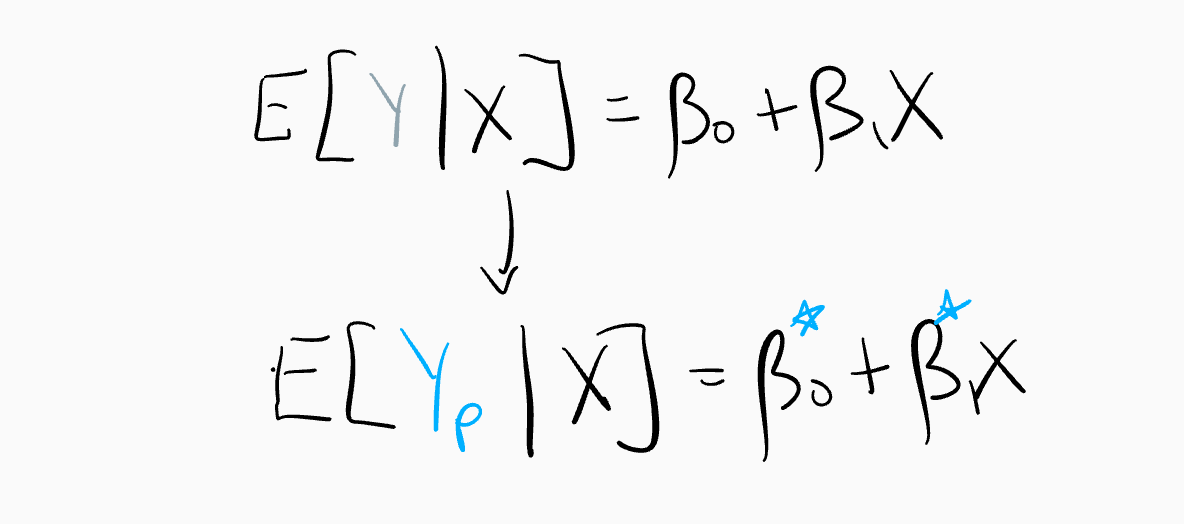 E[Y|X] = β₀ + β₁X
↓
E[Yₚ|X] = β₀* + β₁*X